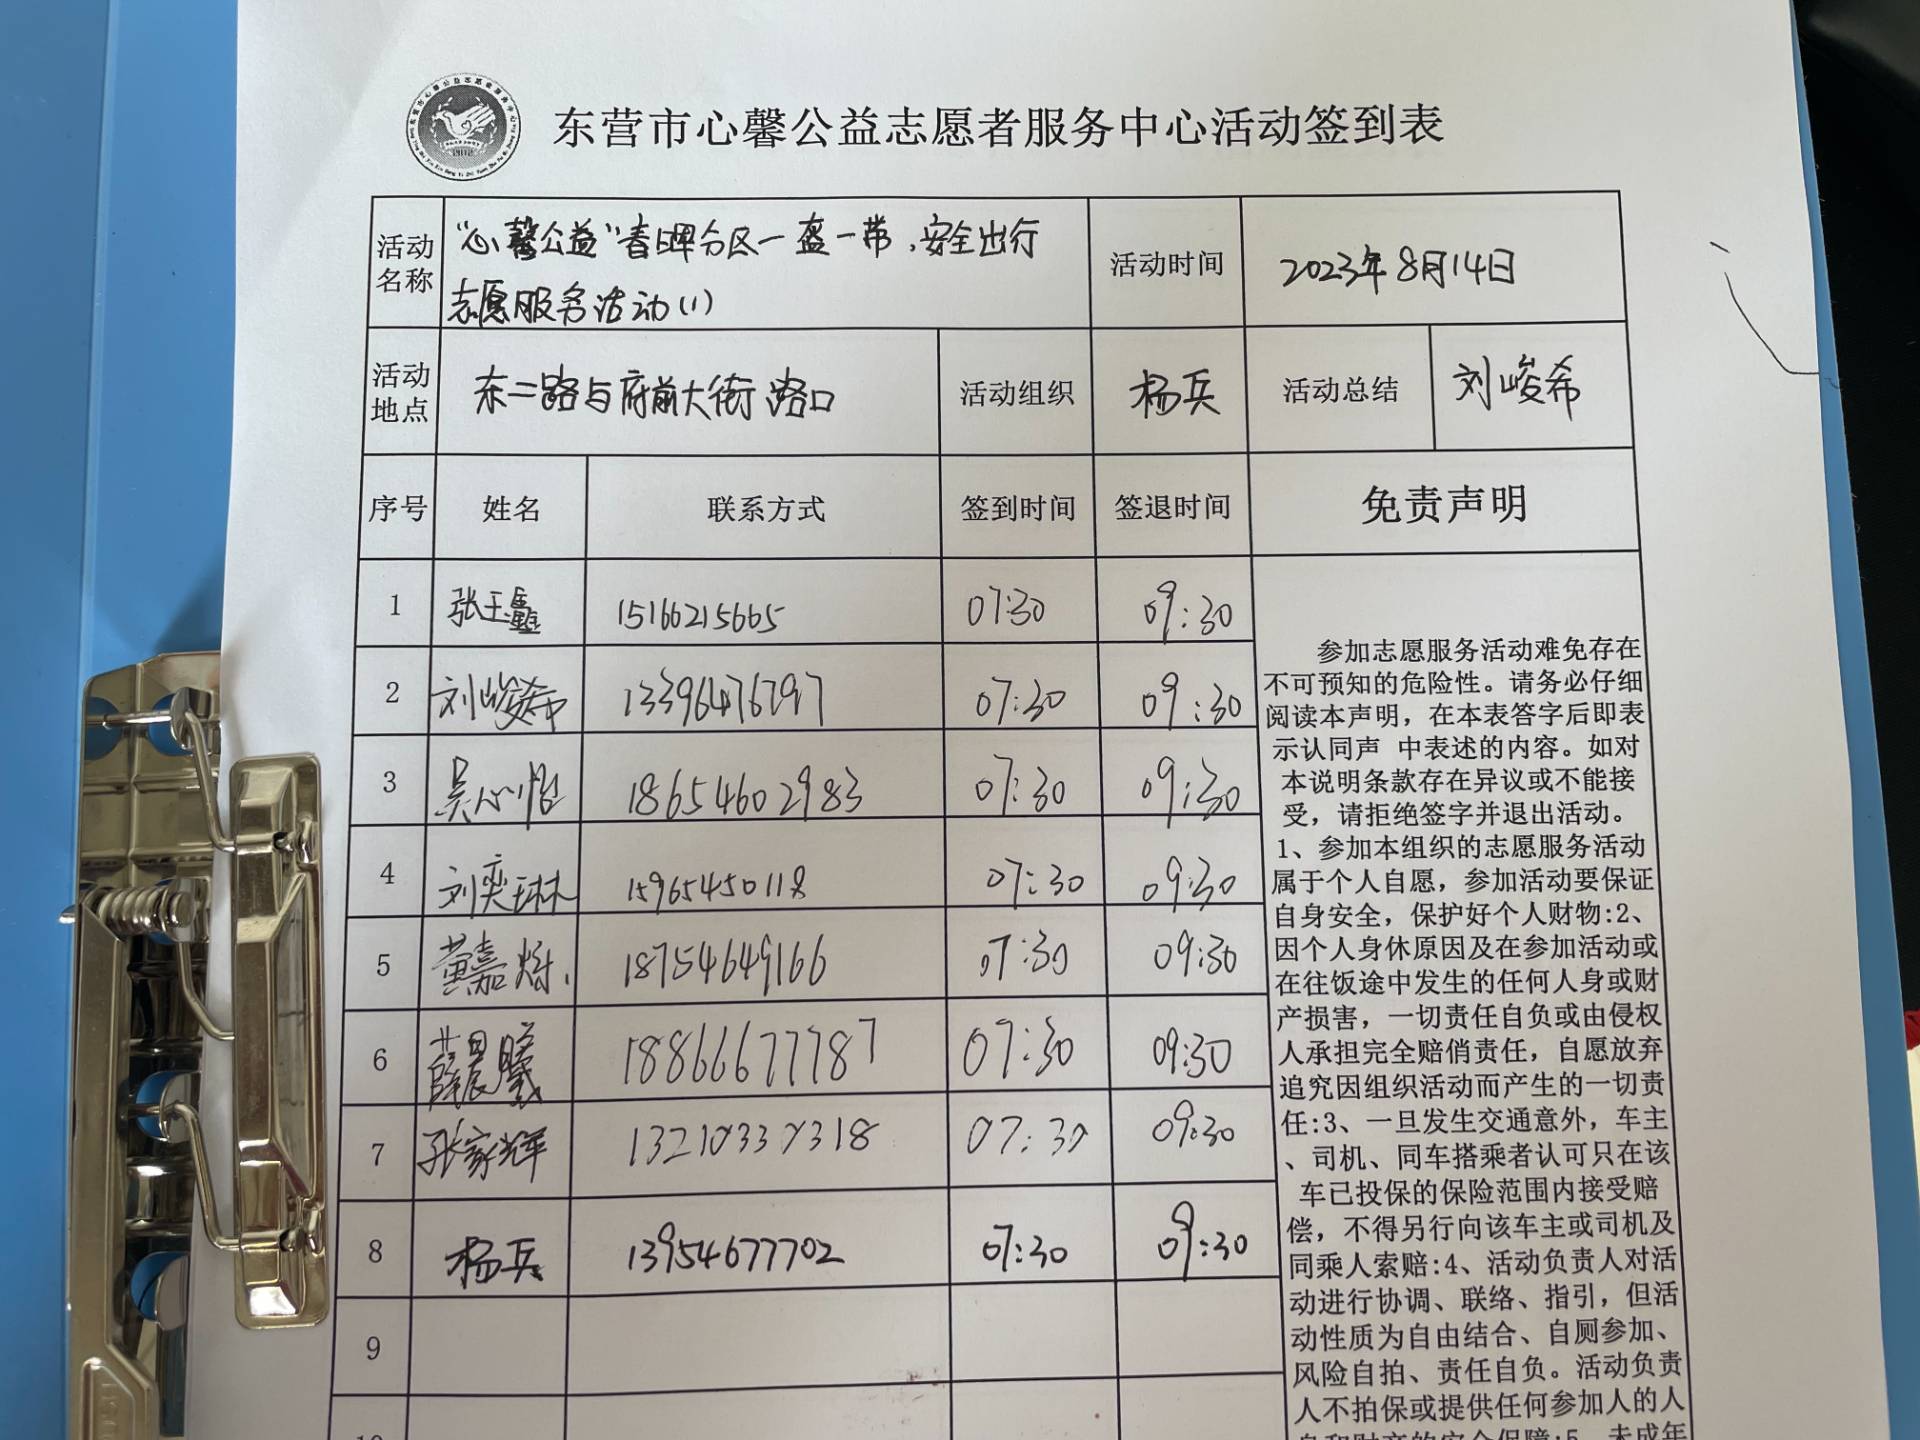 东营市心馨公益志愿者服务中心活动签到表
活动名称 “心馨公益”春晖分区一盔一带，安全出行志愿服务活动(1) 活动时间 2023年8月14日
活动地点 东二路与府前大街路口 活动组织 杨兵 活动总结 刘峻希
序号 姓名 联系方式 签到时间 签退时间 免责声明
1 15166215665 07:30 09:30
2 刘峻希 13396476797 07:30 09:30
3 吴心怡 18654602983 07:30 09:30
4 刘奕琳 15965450118 07:30 09:30
5 黄嘉烁 18754649166 07:30 09:30
6 薛晨曦 18866677787 07:30 09:30
7 张家辉 13210330318 07:30 09:30
8 杨兵 13954677702 07:30 09:30
9
参加志愿服务活动难免存在
不可预知的危险性。请务必仔细
阅读本声明，在本表答字后即表
示认同声 中表述的内容。如对
本说明条款存在异议或不能接
受，请拒绝签字并退出活动。
1、参加本组织的志愿服务活动
属于个人自愿，参加活动要保证
自身安全，保护好个人财物:2、
因个人身休原因及在参加活动或
在往饭途中发生的任何人身或财
产损害，一切责任自负或由侵权
人承担完全赔俏责任，自愿放弃
追究因组织活动而产生的一切责
任:3、一旦发生交通意外，车主
、司机、同车搭乘者认可只在该
车已投保的保险范围内接受赔
偿，不得另行向该车主或司机及
同乘人索赔:4、活动负责人对活
动进行协调、联络、指引，但活
动性质为自由结合、自厕参加、
风险自拍、责任自负。活动负责
人不拍保或提供任何参加人的人